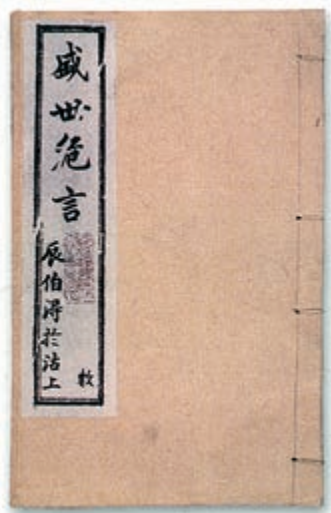 盛世危言
辰伯得於沽上